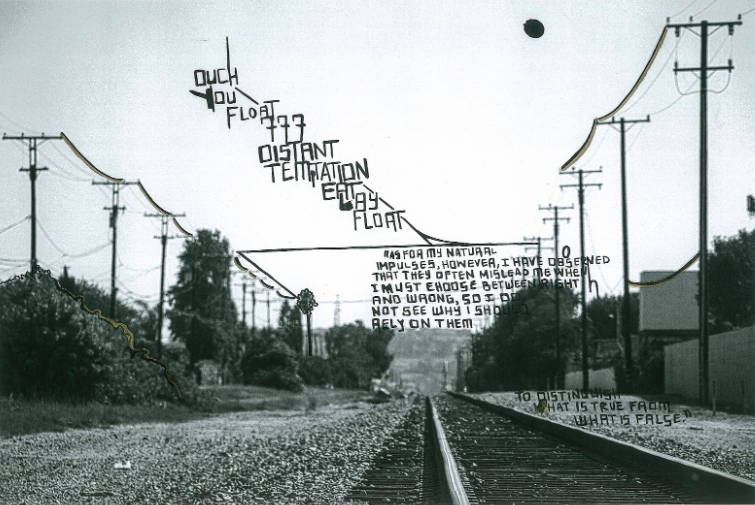 OUCH
YOU
FLOAT
777
DISTANT
TEMPTATION
EAT
FLOAT
"AS FOR MY NATURAL
IMPULSES, HOWEVER, I HAVE OBSERVED
THAT THEY OFTEN MISLEAD ME WHEN
I MUST CHOOSE BETWEEN RIGHT
AND WRONG, SO I DO
NOT SEE WHY I SHOULD
RELY ON THEM
O
h
TO DISTINGUISH
WHAT IS TRUE FROM
WHAT IS FALSE."